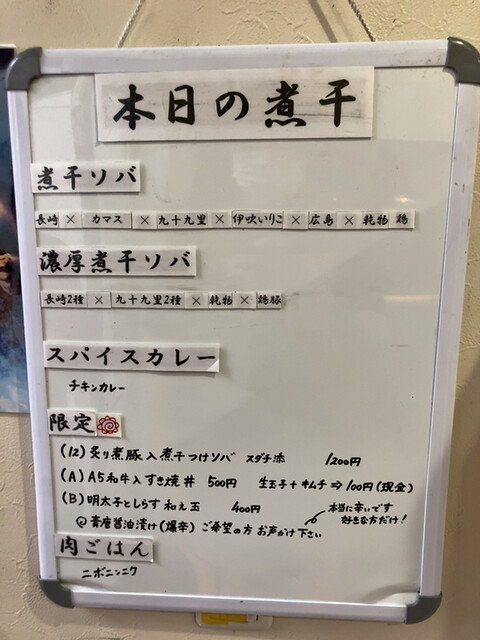 本日の煮干
煮干ソバ
長崎 × カマス × 九十九里 × 伊吹いりこ × 広島 × 乾物 鶏
濃厚煮干ソバ
長崎2種 × 九十九里2種 × 乾物 × 鶏豚
スパイスカレー
チキンカレー
限定
(12) 炙り煮豚入煮干つけソバ スダチ添 1200円
(A) A5和牛入すき焼丼 500円 生玉子+キムチ⇒100円(現金)
(B) 明太子としらす和え玉 400円
本当に辛いです
好きな方だけ!
@ 青唐醤油漬け(爆辛) ご希望の方お声かけ下さい
肉ごはん
ニボニンニク